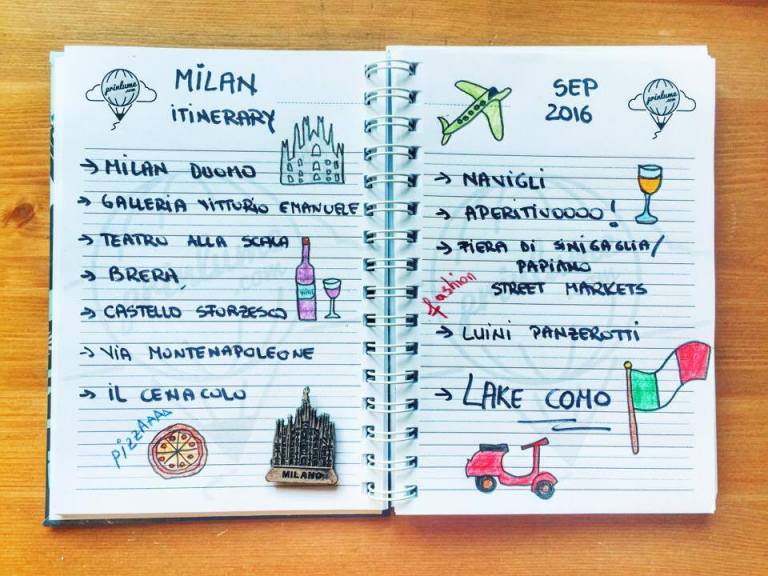 printume
.com
MILAN
ITINERARY
→ MILAN DUOMO
→ GALLERIA VITTORIO EMANUELE
→ TEATRO ALLA SCALA
→ BRERA
→ CASTELLO SFORZESCO
→ VIA MONTENAPOLEONE
→ IL CENACOLO
PIZZAAAA
MILANO
SEP
2016
printume
.com
→ NAVIGLI
→ APERITIVOOOO!
→ FIERA DI SINIGAGLIA/
PAPIANO
fashion
STREET MARKETS
→ LUINI PANZEROTTI
→ LAKE COMO